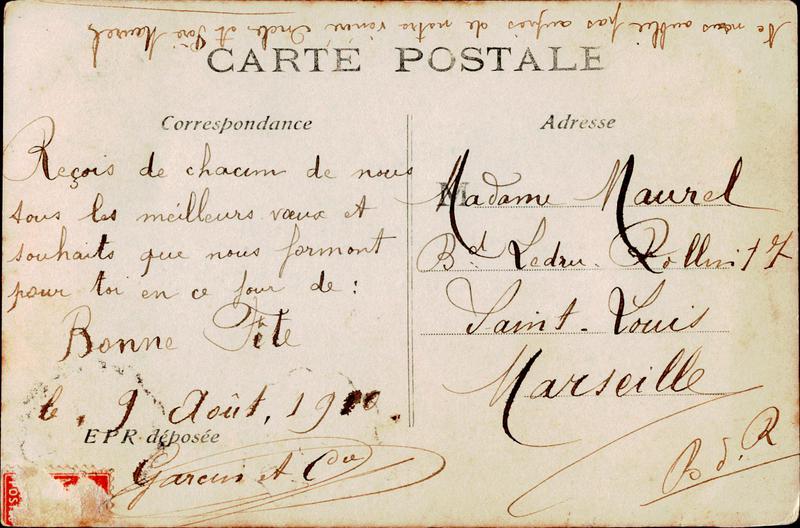 Ne nous oublie pas aupres de notre vonne Oncle et Pére Maurel
CARTE POSTALE
Correspondance
Reçois de chacun de nous
tous les meilleurs vœux et
souhaits que nous formont
pour toi en ce jour de :
Bonne Fête
le, 9 Août, 1910.
EPR déposée
Garcin et Cdie
Adresse
Madame Maurel
Bd Ledru-Rollin 17
Saint-Louis
Marseille
B d. R